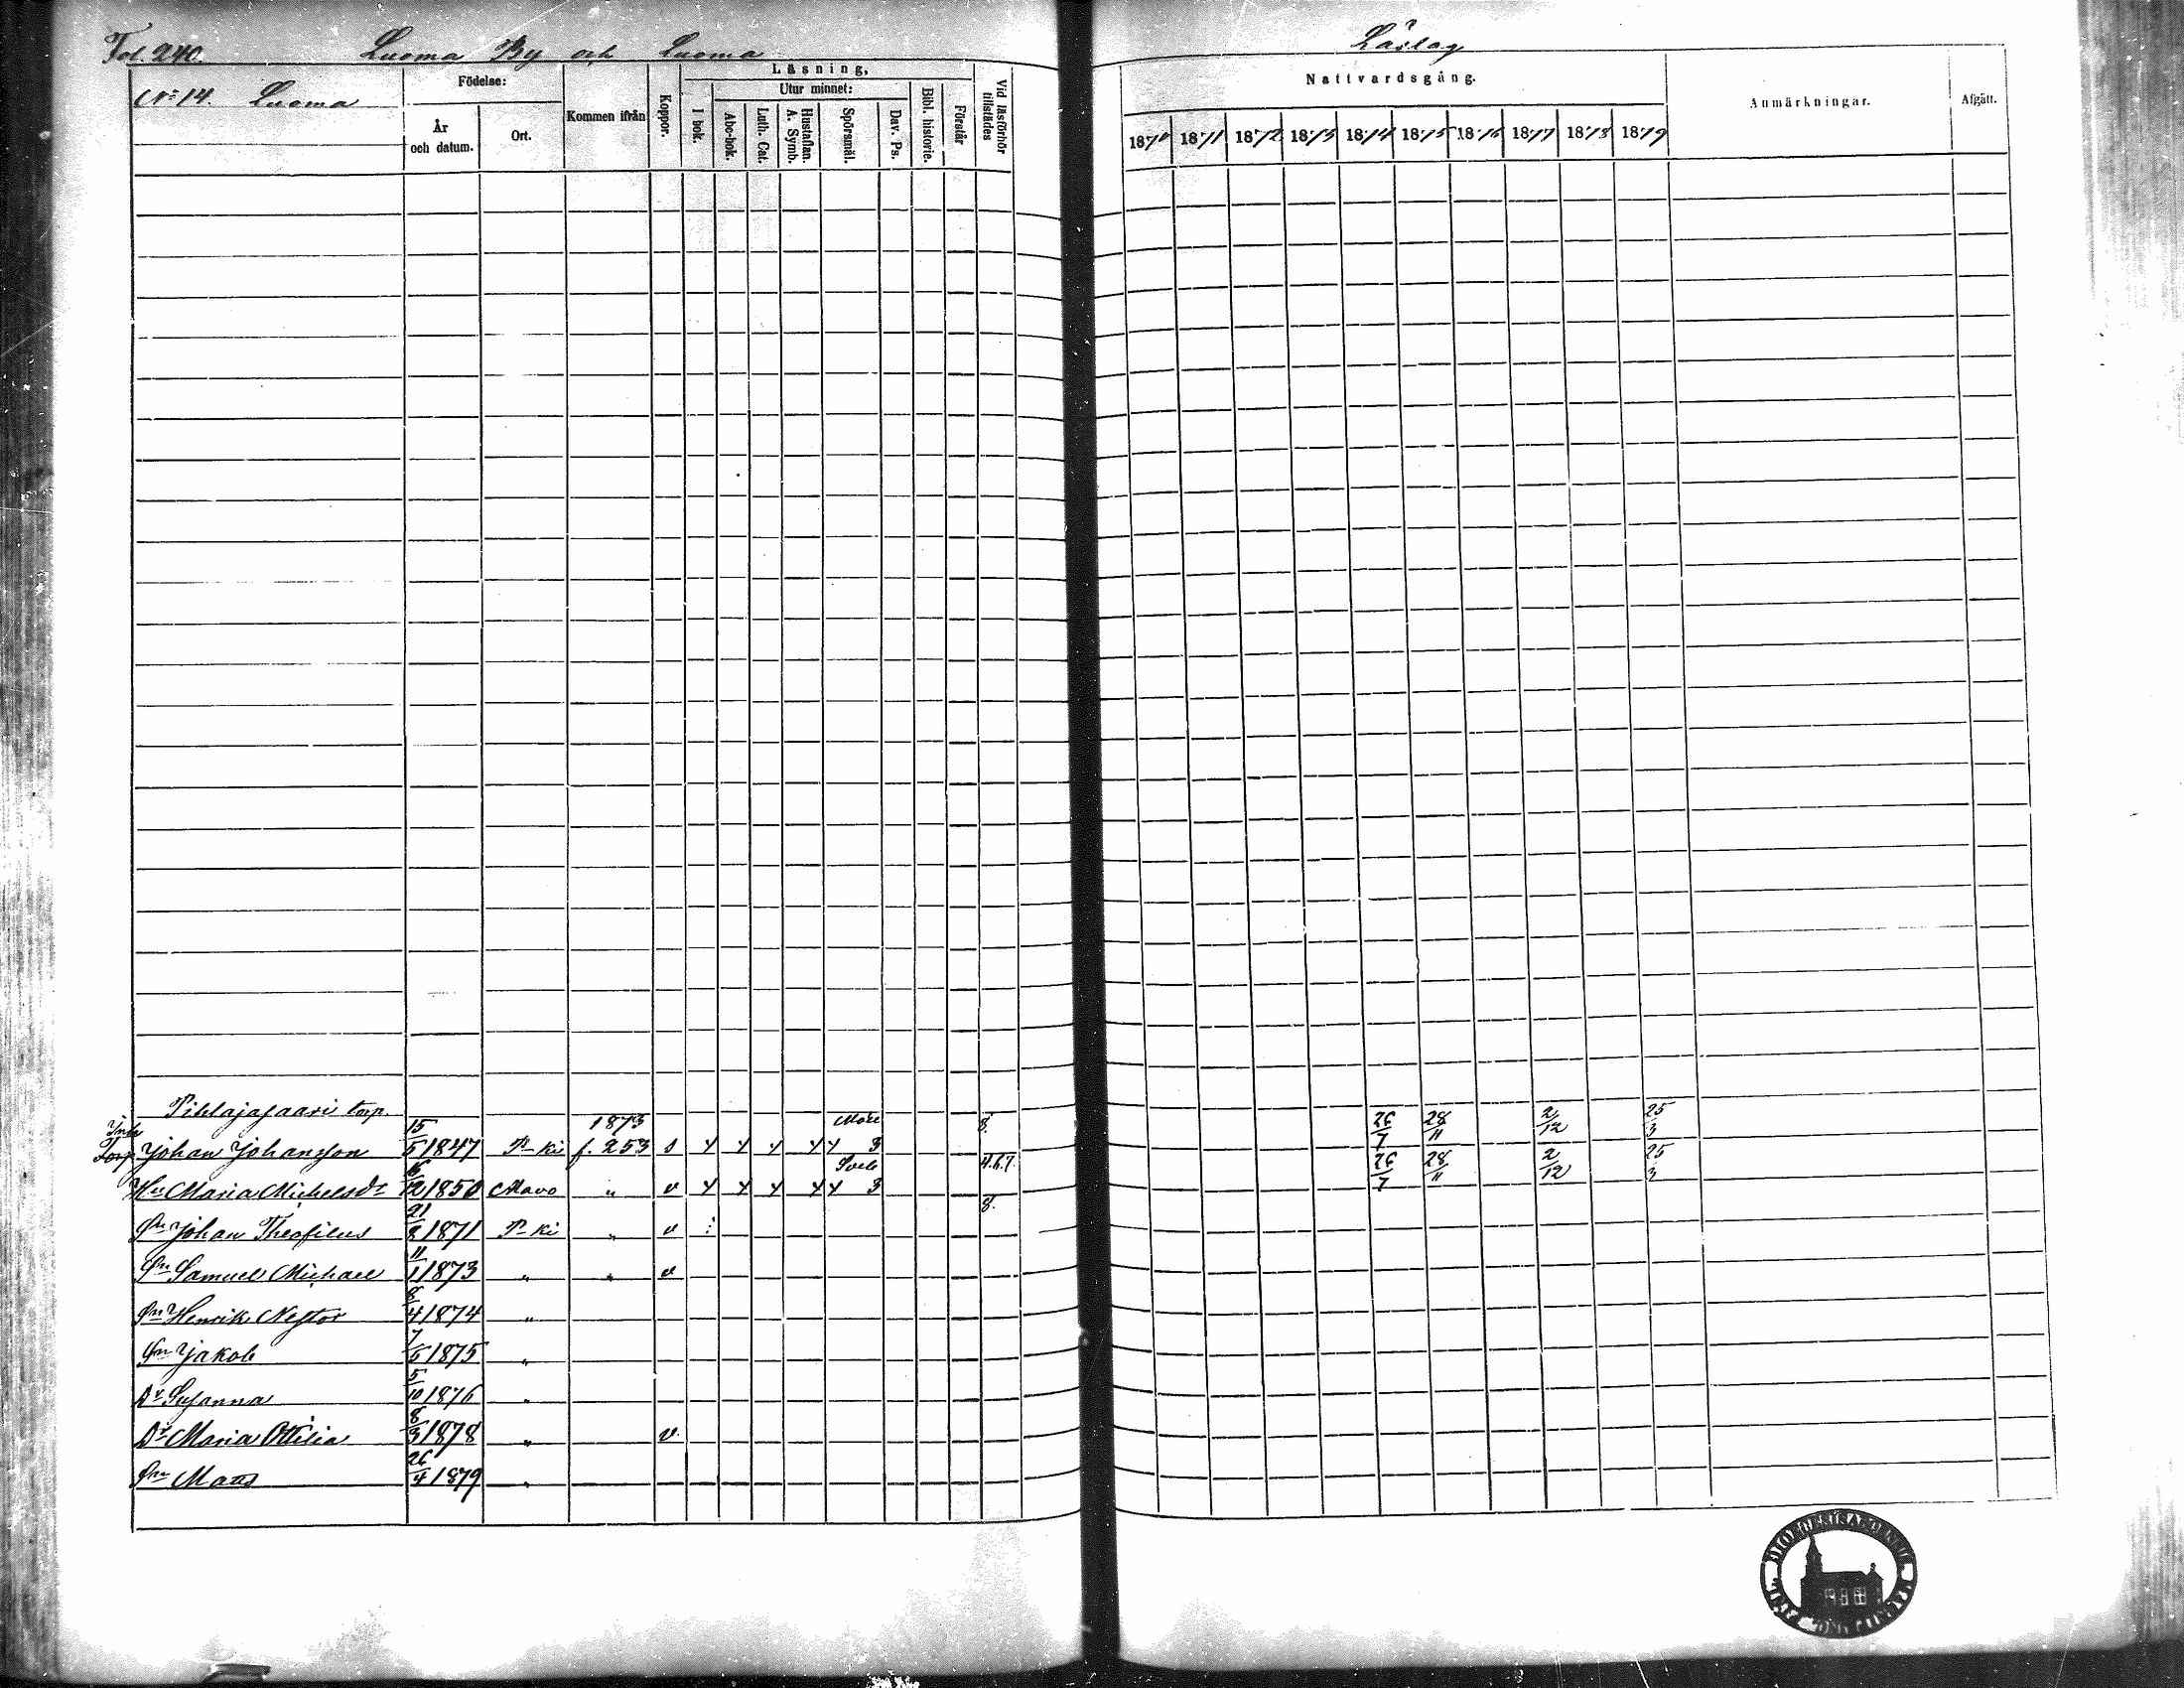 Fol. 240. Luoma By och Luoma Läslag
No 14. Luoma
Födelse:
År och datum.
Ort.
Kommen ifrån
Koppor.
Läsning,
I bok.
Utur minnet:
Abc-bok.
Luth. Cat.
Hustaflan. A. Symb.
Spörsmål.
Dav. Ps.
Bibl. historie.
Förstår
Vid läsförhör tillstädes
Nattvardsgång.
1870 1871 1872 1873 1874 1875 1876 1877 1878 1879
Anmärkningar.
Afgått.
Pihlajasaari torp.
Torp. Johan Johansson 15/5 1847 P-ki 1873 f. 253 s 3 8. 26/7 28/11 2/12 25/3
Hu Maria Michelsdr 1850 Mavo " v 3 4.6.7. 8. 26/7 28/11 2/12 25/3
Sn Johan Theofilus 21/8 1871 P-ki " v
Sn Samuel Michael 11/1 1873 " " v
Sn Henrik Nestor 8/4 1874 "
Sn Jakob 7/5 1875 "
Dr Susanna 5/10 1876 "
Dr Maria Ottilia 8/3 1878 " v.
Sn Matts 26/4 1879 "